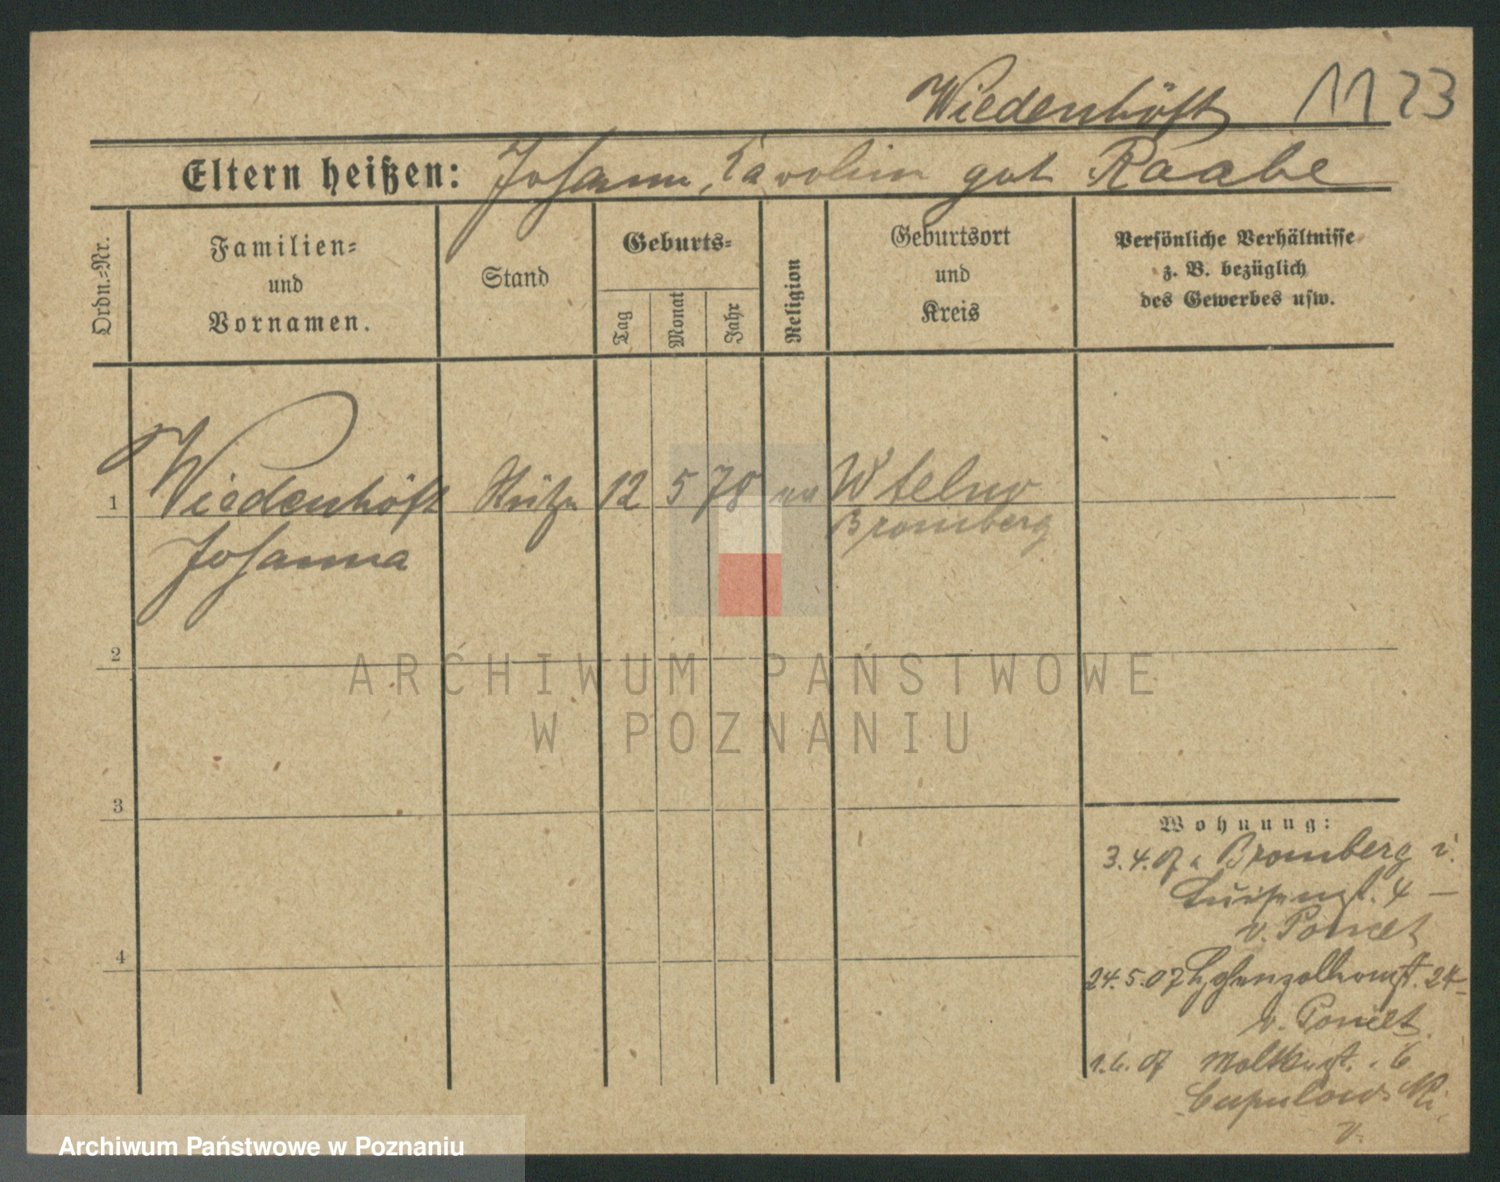 Wiedenhöft 1123
Eltern heißen: Johann, Karolin geb Raabe
Ordn.=Nr.
Familien=
und
Vornamen.
Stand
Geburts=
Tag
Monat
Jahr
Religion
Geburtsort
und
Kreis
Persönliche Verhältnisse
z. B. bezüglich
des Gewerbes usw.
1 Wiedenhöft Stütze 12 5 78 ev Wtelno
Johanna Bromberg
2
3
4
Wohnung:
3.4.07 Bromberg
Luisenst. 4 —
v. Poncet
24.5.07 Hohenzollernst. 24
v. Poncet
1.6.07 Moltkest. 6
ARCHIWUM PAŃSTWOWE
W POZNANIU
Archiwum Państwowe w Poznaniu